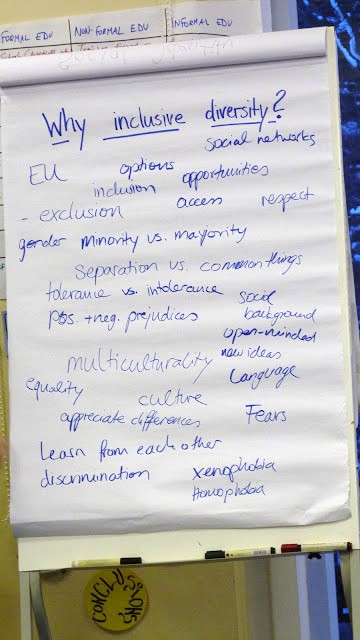 FORMAL EDU NON-FORMAL EDU INFORMAL EDU
Why inclusive diversity?
social networks
EU options opportunities
inclusion
- exclusion access respect
gender minority vs. mayority
separation vs. common things
tolerance vs. intolerance social
background
pos. + neg. prejudices
open-minded
multiculturality new ideas
Language
equality culture
appreciate differences Fears
Learn from each other
discrimination xenophobia
Homophobia
CONCLUSIONS